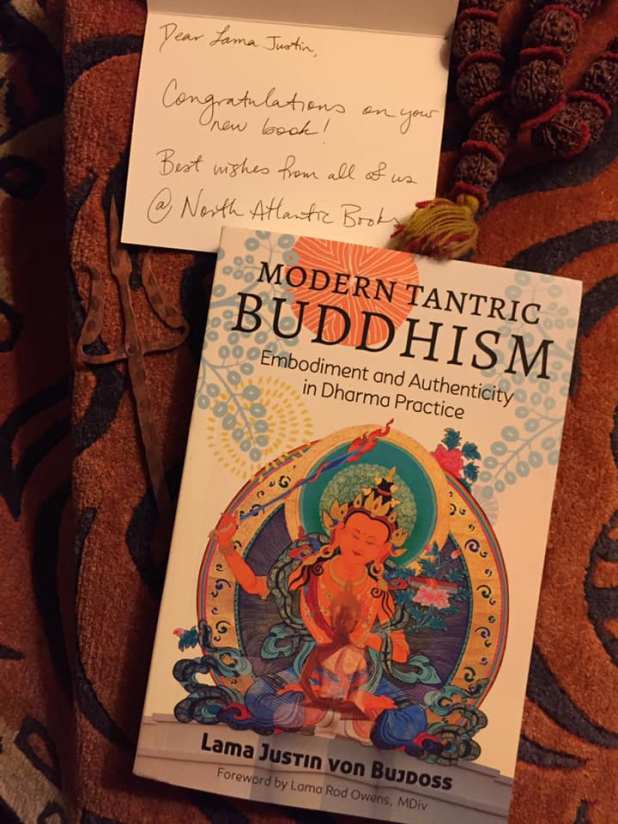 Dear Lama Justin,
Congratulations on your
new book!
Best wishes from all of us
@ North Atlantic Books
MODERN TANTRIC
BUDDHISM
Embodiment and Authenticity
in Dharma Practice
LAMA JUSTIN VON BUJDOSS
Foreword by Lama Rod Owens, MDiv